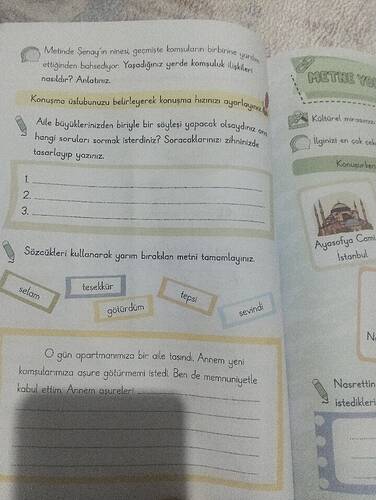 Metinde Şenay'ın ninesi, geçmişte komşuların birbirine yardım
ettiğinden bahsediyor. Yaşadığınız yerde komşuluk ilişkileri
nasıldır? Anlatınız.
Konuşma üslubunuzu belirleyerek konuşma hızınızı ayarlayınız.
Aile büyüklerinizden biriyle bir söyleşi yapacak olsaydınız ona
hangi soruları sormak isterdiniz? Soracaklarınızı zihninizde
tasarlayıp yazınız.
1.
2.
3.
Sözcükleri kullanarak yarım bırakılan metni tamamlayınız.
selam
teşekkür
götürdüm
tepsi
sevindi
O gün apartmanımıza bir aile taşındı. Annem yeni
komşularımıza aşure götürmemi istedi. Ben de memnuniyetle
kabul ettim. Annem aşureleri
METNE
Kültürel
İlginizi en çok
Ayasofya Cami
İstanbul
Nasrettin
istedikleri